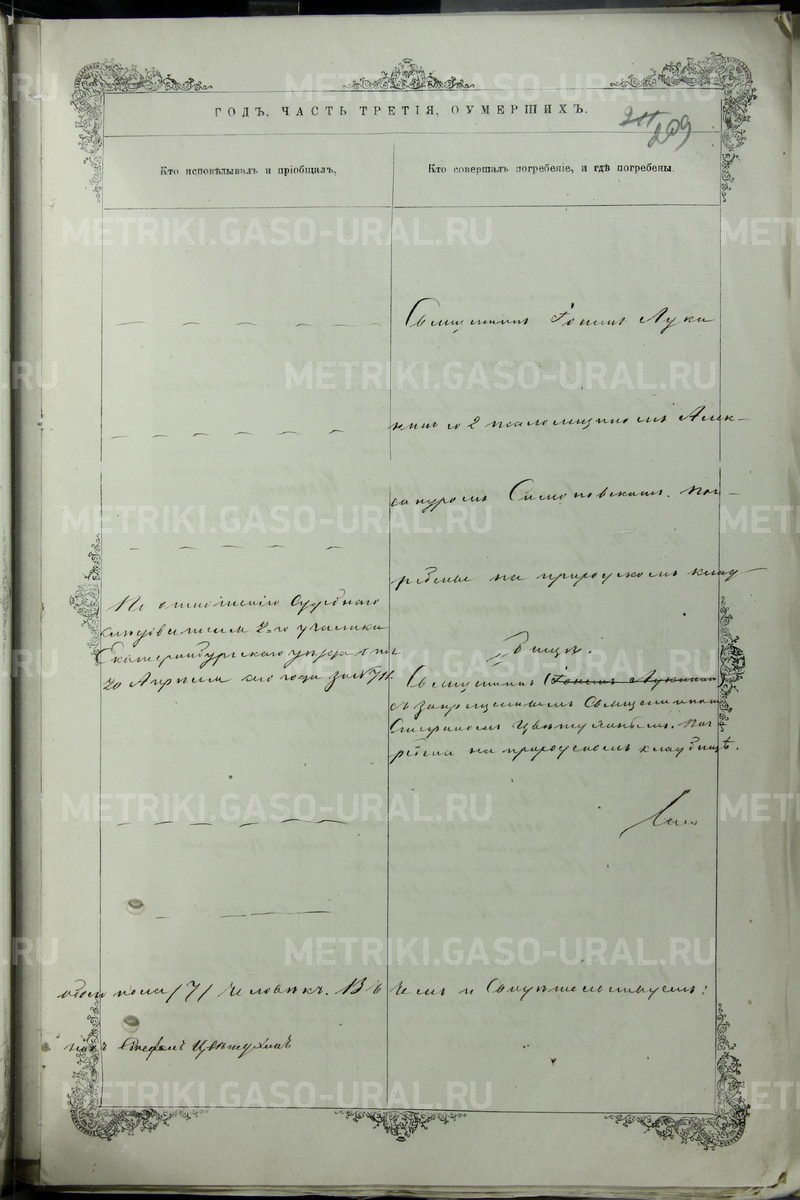 ГОДЪ, ЧАСТЬ ТРЕТІЯ, О УМЕРШИХЪ.
211
209
Кто исповѣдывалъ и пріобщалъ.
Кто совершалъ погребеніе, и гдѣ погребены.
Священникъ Іоаннъ Лука
нинъ со 2 псаломщикомъ Алек-
сандромъ Симоновскимъ. Пог-
ребены на приходскомъ клад-
бищѣ.
По отношенію Судебнаго
Слѣдователя 2-го участка
Екатеринбургскаго уѣзда отъ
20 Апрѣля сего года за № 711.
Священникъ Іоаннъ Луканинъ
съ запрещеннымъ Священникомъ
Стефаномъ Цвѣтухинымъ. Пог
ребена на приходскомъ кладбищѣ.
обоего пола /7/ человѣкъ. Въ чемъ и Свидѣтельствуемъ:
Стефанъ Цвѣтухинъ
METRIKI.GASO-URAL.RU